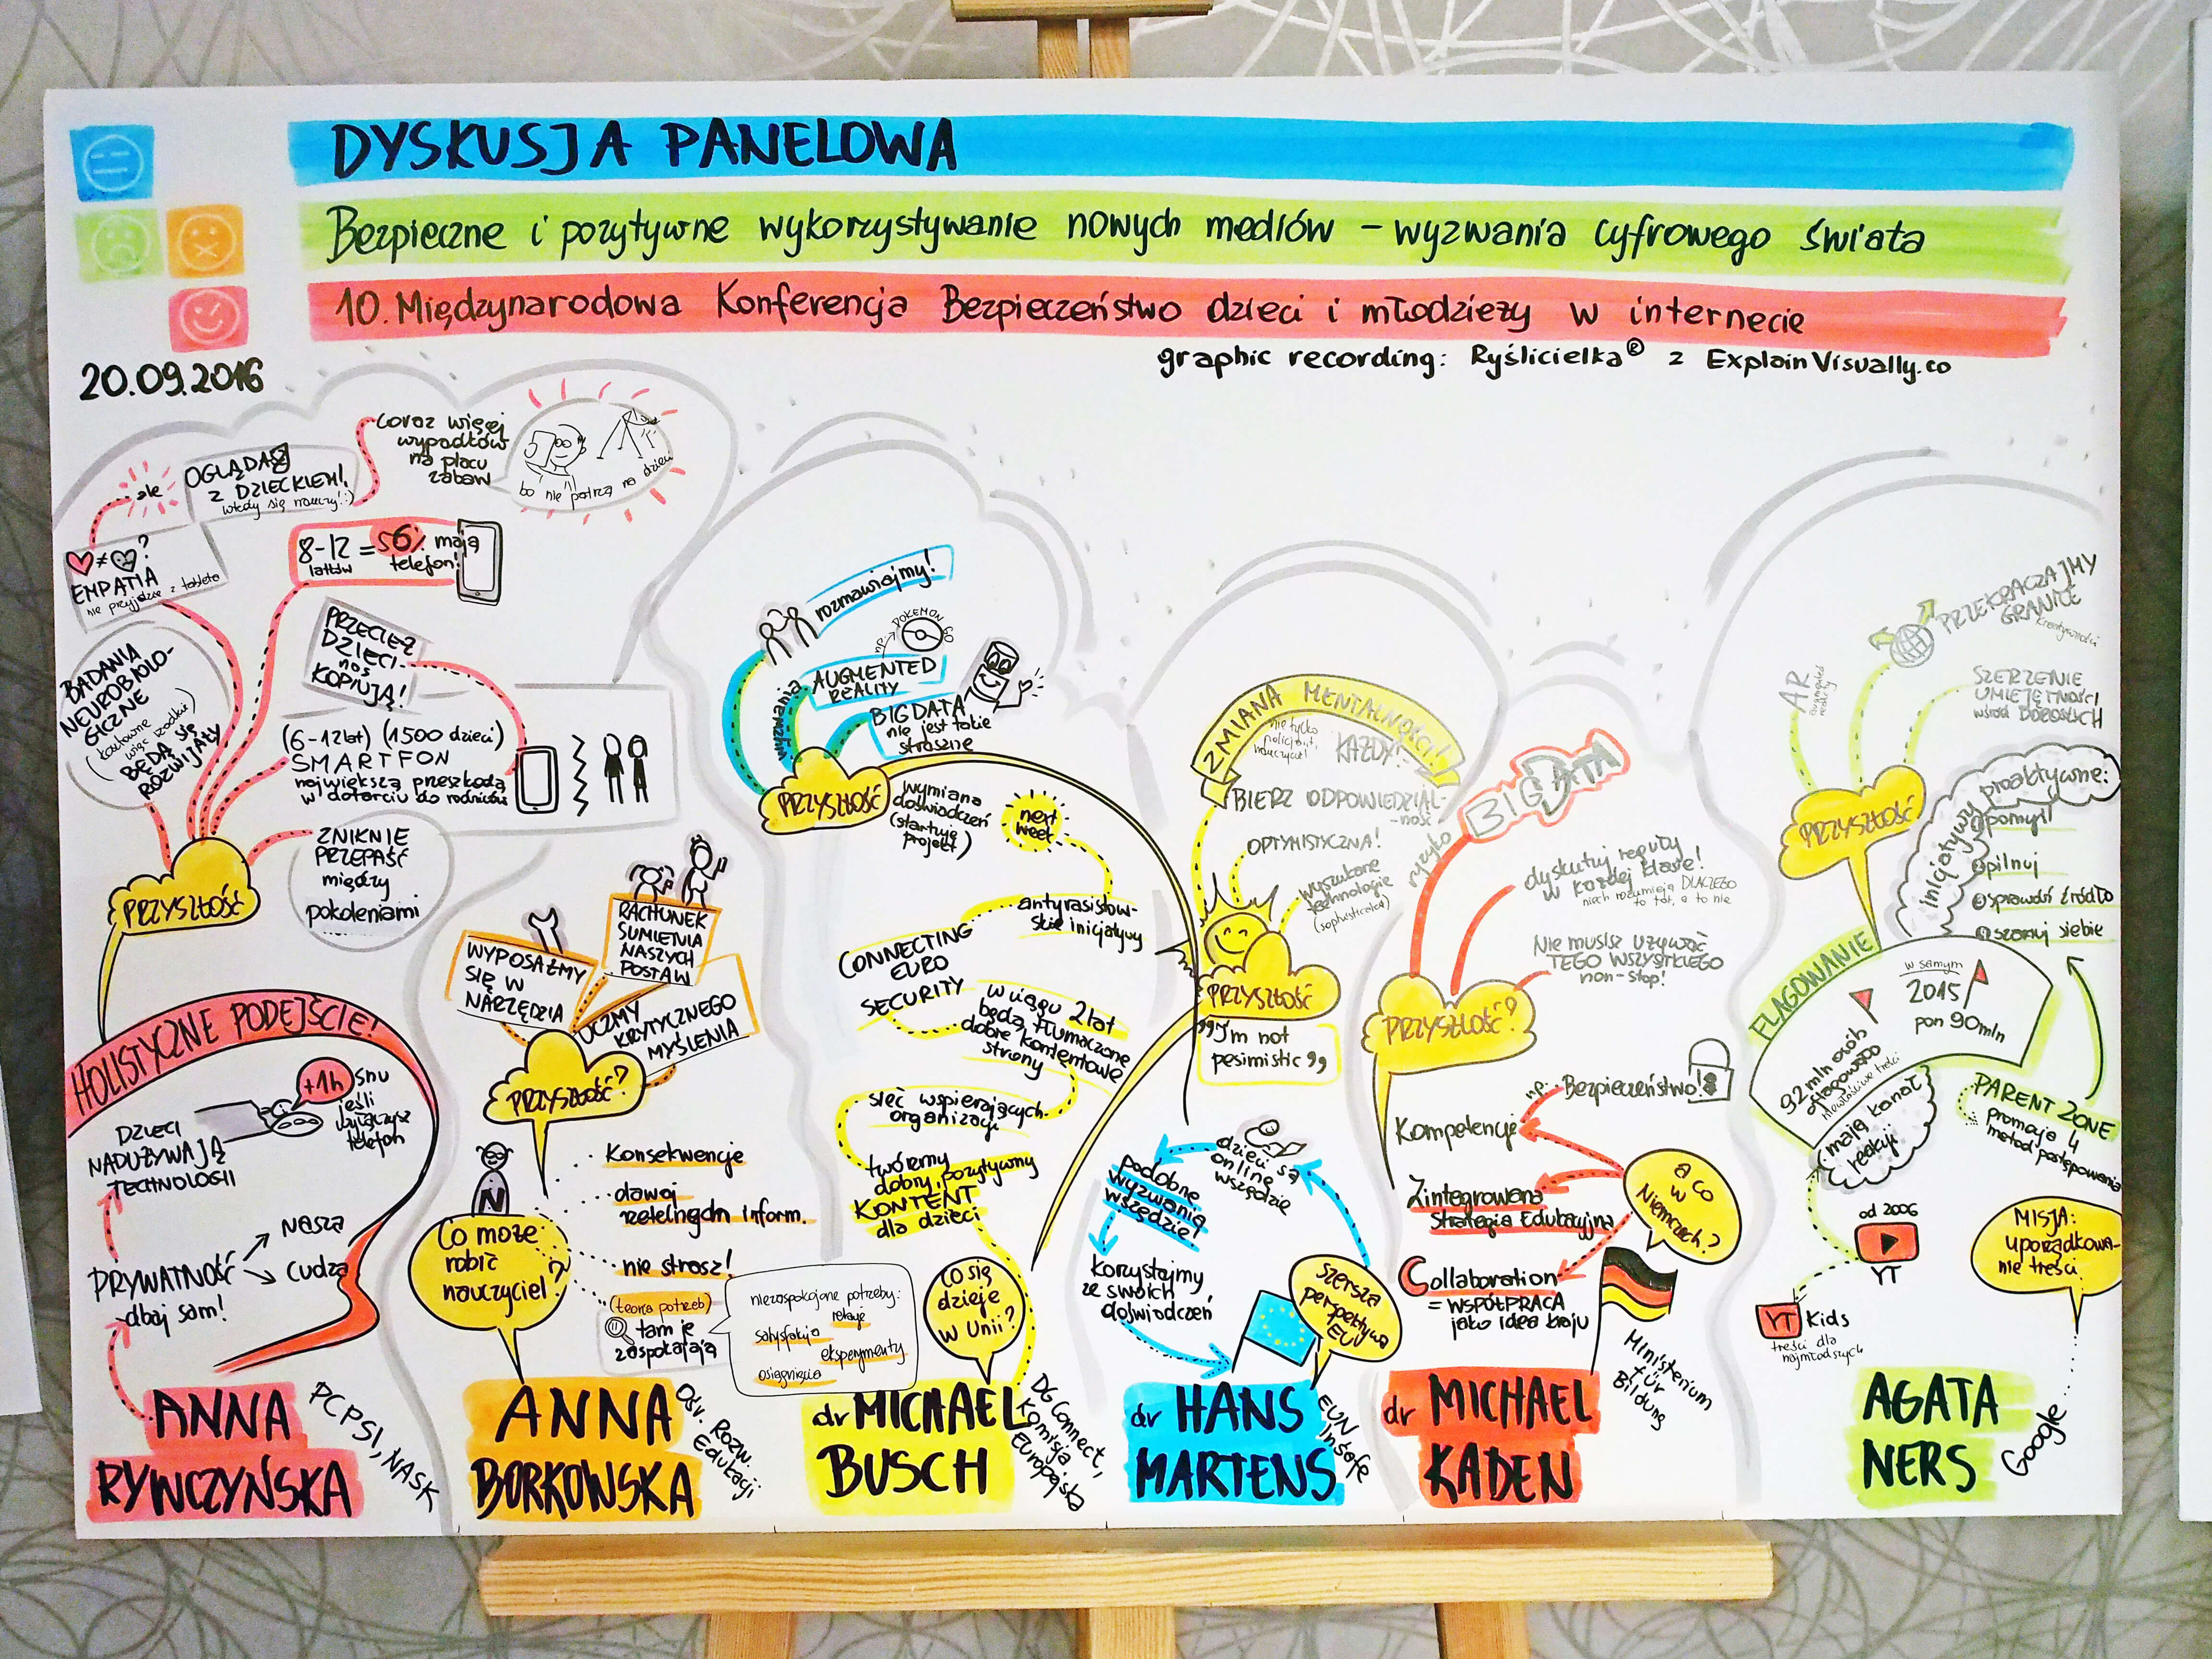 DYSKUSJA PANELOWA
Bezpieczne i pozytywne wykorzystywanie nowych mediów – wyzwania cyfrowego świata
10. Międzynarodowa Konferencja Bezpieczeństwo dzieci i młodzieży w internecie
20.09.2016
graphic recording: Ryślicielka® z ExplainVisually.co
coraz więcej
wypadków
na placu
zabaw
bo nie patrzą na dzieci
ale
OGLĄDASZ
z DZIECKIEM!
wtedy się nauczy! :)
♥≠ ?
EMPATIA
nie przyjdzie z tabletu
8-12 = 56% mają
latków telefon!
PRZECIEŻ
DZIECI
nas
KOPIUJĄ!
BADANIA
NEUROBIOLO-
GICZNE
(kosztowne
więc rzadkie)
BĘDĄ się
ROZWIJAŁY
(6-12 lat) (1500 dzieci)
SMARTFON
największą przeszkodą
w dotarciu do rodziców
ZNIKNIE
PRZEPAŚĆ
między
pokoleniami
PRZYSZŁOŚĆ
HOLISTYCZNE PODEJŚCIE!
+1h snu
jeśli
wyłączysz
telefon
DZIECI
NADUŻYWAJĄ
TECHNOLOGII
PRYWATNOŚĆ
nasza
cudza
dbaj sam!
ANNA
RYWCZYŃSKA
PCPSI, NASK
WYPOSAŻMY
SIĘ W
NARZĘDZIA
RACHUNEK
SUMIENIA
NASZYCH
POSTAW
UCZMY
KRYTYCZNEGO
MYŚLENIA
PRZYSZŁOŚĆ?
N
Co może
robić
nauczyciel?
Konsekwencje
dawaj
rzetelnych inform.
nie strasz!
(teoria potrzeb)
tam je
zaspokajają
niezaspokojone potrzeby:
relacje
satysfakcja
eksperymenty
osiągnięcia
ANNA
BORKOWSKA
Ośr. Rozw.
Edukacji
rozmawiajmy!
np. POKEMON GO
wyzwania
AUGMENTED
REALITY
BIG DATA
nie jest takie
straszne
PRZYSZŁOŚĆ
wymiana
doświadczeń
(startuje
projekt)
next
week
antyrasistow-
skie inicjatywy
CONNECTING
EURO
SECURITY
w ciągu 2 lat
będą tłumaczone
dobre kontentowe
strony
sieć wspierających
organizacji
twórzmy
dobry, pozytywny
KONTENT
dla dzieci
Co się
dzieje
w Unii?
dr MICHAEL
BUSCH
DG Connect,
Komisja
Europejska
ZMIANA MENTALNOŚCI!
nie tylko
policjant,
nauczyciel
KAŻDY!
BIERZ ODPOWIEDZIAL-
-NOŚĆ
OPTYMISTYCZNA!
wyszukane
technologie
(sophisticated)
PRZYSZŁOŚĆ
"I'm not
pesimistic"
dzieci są
online
wszędzie
podobne
wyzwania
wszędzie!
korzystajmy
ze swoich
doświadczeń
szersza
perspektywa
EU
dr HANS
MARTENS
EUN
Insafe
BIG DATA
ryzyko
dyskutuj reguły
w każdej klasie!
niech rozumieją DLACZEGO
to tak, a to nie
Nie musisz używać
TEGO WSZYSTKIEGO
non-stop!
PRZYSZŁOŚĆ?
np. Bezpieczeństwo!
Kompetencje
Zintegrowana
Strategia Edukacyjna
Collaboration
= WSPÓŁPRACA
jako idea kraju
a co
w
Niemczech?
dr MICHAEL
KADEN
Ministerium
für
Bildung
PRZEKRACZAJMY
GRANICE
kreatywności
AR
augmented
reality
SZERZENIE
UMIEJĘTNOŚCI
wśród DOROSŁYCH
PRZYSZŁOŚĆ
inicjatywy proaktywne:
pomyśl
pilnuj
sprawdź źródło
szanuj siebie
FLAGOWANIE
w samym
2015
pon 90 mln
92 mln osób
oflagowało
niewłaściwe treści
mają kanał
reakcji
PARENT ZONE
promuje 4
metod postępowania
od 2006
YT
YT Kids
treści dla
najmłodszych
MISJA:
uporządkowa-
nie treści
AGATA
NERS
Google